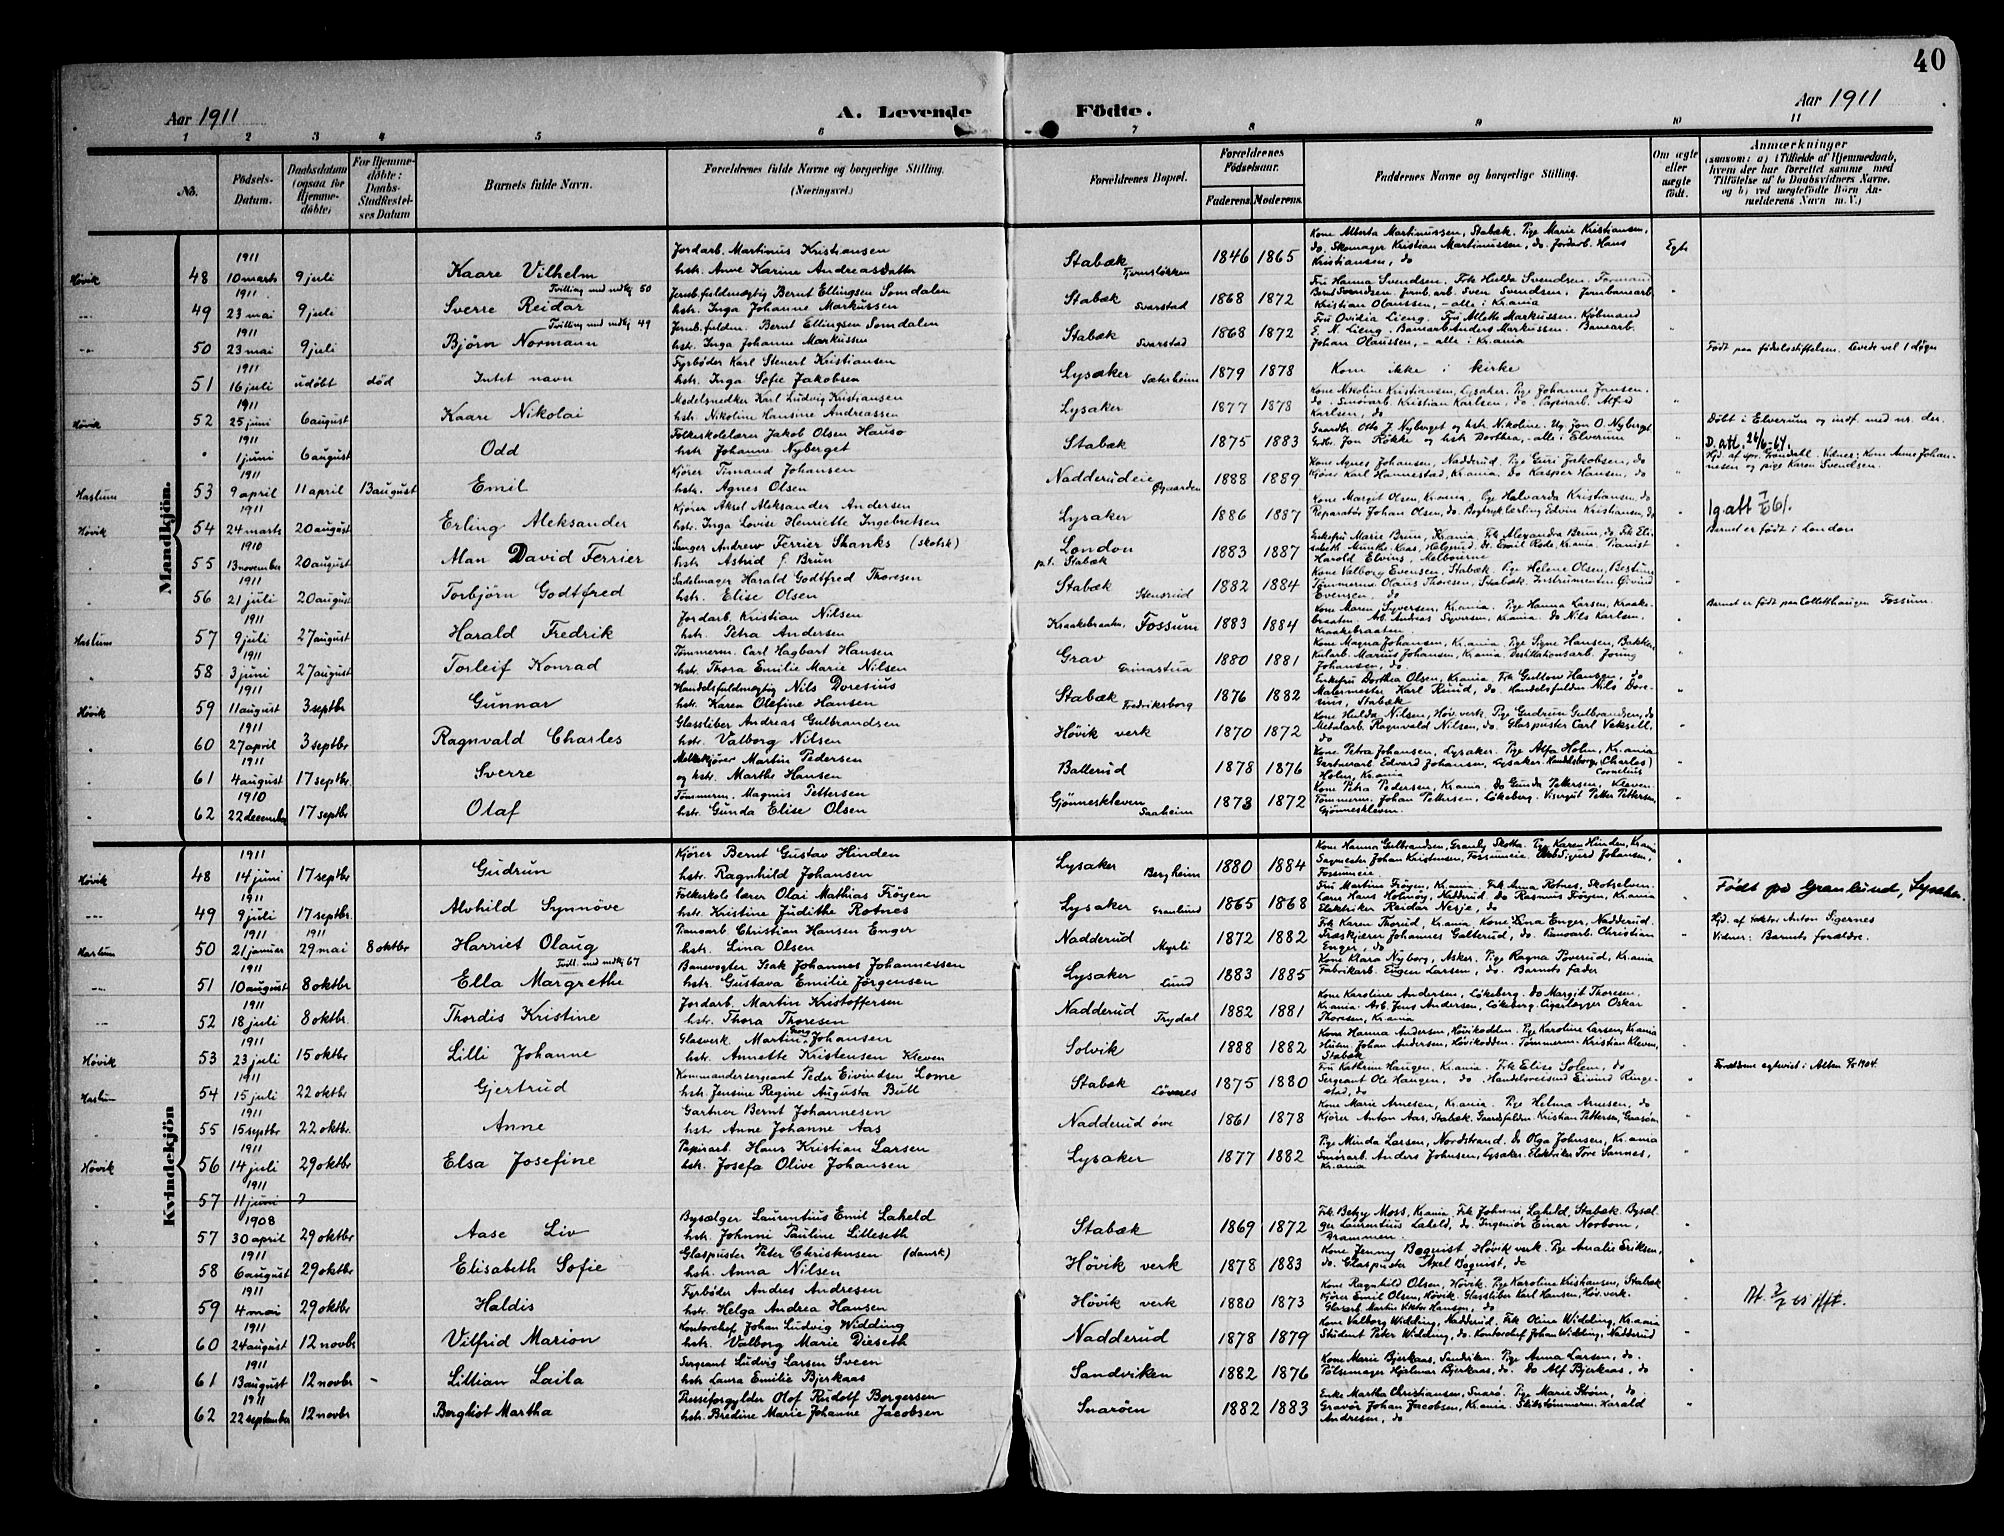 40
Aar 1911
A. Levende
Födte.
Aar 1911
1 2 3 4 5 6 7 8 9 10 11
No.
Födsels-Datum.
Daabsdatum (ogsaa for Hjemmedöbte)
For Hjemmedöbte: Daabs-Stadfæstelses Datum
Barnets fulde Navn.
Forældrenes fulde Navne og borgerlige Stilling. (Næringsvei.)
Forældrenes Bopæl.
Forældrenes Födselsaar.
Faderens. Moderens.
Faddernes Navne og borgerlige Stilling.
Om ægte eller uægte födt.
Anmærkninger
(saasom: a) i Tilfælde af Hjemmedaab, hvem der har forrettet samme med Tilföielse af to Daabsvidners Navne, og b) ved uægtefödte Börn Anmelderens Navn m.V.)
Mandkjön.
Høvik 48 1911 10 marts 9 juli Kaare Vilhelm
Jordarb. Martinus Kristiansen
hstr. Anne Karine Andreasdatter
Stabæk 1846 1865
Kone Alberta Martinussen, Stabæk. Pige Marie Kristiansen,
do. Skomager Kristian Martinussen, do. Jordarb. Hans
Kristiansen, do
Egte
49 1911 23 mai 9 juli Sverre Reidar
Tvilling med mdkj 50
Jernb.fuldmægtig Bernt Ellingsen Somdalen
hstr. Inga Johanne Markussen
Stabæk Svarstad 1868 1872
Fru Hanna Svendsen, Frk Hulda Svendsen. Formand
Bernt Svendsen, Jernb.arb. Sven Svendsen, Jernbanearb.
Kristian Olaussen, - alle i Kr.ania
50 1911 23 mai 9 juli Björn Normann
Tvilling med mdkj 49
Jernb.fuldm. Bernt Ellingsen Somdalen
hstr. Inga Johanne Markussen
Stabæk Svarstad 1868 1872
Fru Ovidia Lieng. Fru Alette Markussen. Købmand
E. N. Lieng. Banearb. Anders Markussen. Banearb.
Johan Olaussen, - alle i Kr.ania
51 1911 16 juli udöbt död Intet navn
Fyrbøder Karl Stenert Kristiansen
hstr. Inga Sofie Jakobsen
Lysaker Sæterheim 1879 1878
Kom ikke i kirke
Født paa fødselsstiftelsen. Levede vel 1 døgn
Høvik 52 1911 25 juni 6 august Kaare Nikolai
Modelsnedker Karl Ludvig Kristiansen
hstr. Nikoline Hansine Andreassen
Lysaker 1877 1878
Kone Nikoline Kristiansen, Lysaker. Pige Johanne Jansen.
do. Smørarb. Kristian Karlsen, do. Papirarb. Alfred
Karlsen, do
1911 1 juni 6 august Odd
Folkeskolelærer Jakob Olsen Hauso
hstr. Johanne Nyberget
Stabæk 1875 1883
Gaardbr. Otto J. Nyberget og hstr. Nikoline. Ug. Jon O. Nyberget
Gdbr. Jon Røkke og hstr Dorthea, - alle i Elverum
Döbt i Elverum og indf. med nr. der.
D. att. 26/6-64.
Haslum 53 1911 9 april 11 april 13 august Emil
Kjører Timand Johansen
hstr. Agnes Olsen
Nadderudeie Øgaarden 1888 1889
Kone Agnes Johansen, Nadderud. Pige Guri Jakobsen, do
Kjører Karl Hannestad, Kr.ania. Do Kasper Hansen, do
Hjd. af spr. Grøndahl. Vidner: Kone Anne Johannesen og pige Karen Svendsen.
Høvik 54 1911 24 marts 20 august Erling Aleksander
Kjører Aksel Aleksander Andersen
hstr. Inga Lovise Henriette Ingebretsen
Lysaker 1886 1887
Kone Margit Olsen, Kr.ania. Pige Halvarda Kristiansen, do
Reparatør Johan Olsen, do. Bogtrykk.lærling Edvin Kristiansen, do
55 1910 13 november 20 august Alan David Ferrier
Sanger Andrew Ferrier Shanks (skotsk)
hstr. Astrid f. Brun
London p.t. Stabæk 1883 1887
Enkefru Marie Brun, Kr.ania. Frk Alexandra Brun, do. Frk Elisabeth Munthe-Kaas, Helgerud. Dr. Emil Rode, Kr.ania. Pianist
Harold Elvins, Melbourne
Barnet er født i London
56 1911 21 juli 20 august Torbjörn Godtfred
Sadelmager Harald Godtfred Thoresen
hstr. Elise Olsen
Stabæk Stensrud 1882 1884
Kone Valborg Evensen, Stabæk. Pige Helene Olsen, Bestum
Tømmerm. Olaus Thoresen, Stabæk. Instrumentm Øivind
Evensen, do
Haslum 57 1911 9 juli 27 august Harald Fredrik
Jordarb. Kristian Nilsen
hstr. Petra Andersen
Kraakebraaten, Fossum 1883 1884
Kone Maren Syversen, Kr.ania. Pige Hanna Larsen, Kraakebraaten. Arb. Andreas Syversen, Kr.ania. Do Nils Karlsen.
Kraakebraaten
Barnet er født paa Collethaugen Fossum.
58 1911 3 juni 27 august Torleif Konrad
Tømmerm. Carl Hagbart Hansen
hstr. Thora Emilie Marie Nilsen
Grav Grinastua 1880 1881
Kone Magna Johansen, Kr.ania. Pige Signe Hansen, Bakken
Johansen, do
Høvik 59 1911 11 august 3 septbr Gunnar
Handelsfuldmægtig Nils Doresius
hstr. Karen Olefine Hansen
Stabæk Fredriksborg 1876 1882
Enkefru Dorthea Olsen, Kr.ania. Frk Gullow Hansen, do
Malermester Karl Ruud, do. Handelsfuldm Nils Doresius, Stabæk
60 1911 27 april 3 septbr Ragnvald Charles
Glassliber Andreas Gulbrandsen
hstr. Valborg Nilsen
Høvik verk 1870 1872
Kone Hulda Nilsen, Høv. verk. Pige Gudrun Gulbrandsen, do
Metalarb. Ragnvald Nilsen, do. Glaspuster Carl Veksell,
do
61 1911 4 august 17 septbr Sverre
Melkekjører Martin Pedersen
og hstr. Marthe Hansen
Ballerud 1878 1876
Kone Petra Johansen, Lysaker. Pige Alfa Holm, Kr.ania
Gartnerarb. Edvard Johansen, Lysaker. Handelsborger (Charles) Cornelius
Holm, Kr.ania
62 1910 22 december 17 septbr Olaf
Tømmerm. Magnus Pettersen
hstr. Gunda Elise Olsen
Gjønneskleven Saaheim 1873 1872
Kone Petra Pedersen, Kr.ania. Do Gunda Pettersen, Kleven.
Tømmerm. Johan Pettersen, Løkeberg. Visergut Petter Pettersen,
Gjønneskleven
Kvindekjön
Høvik 48 1911 14 juni 17 septbr Gudrun
Kjører Bernt Gustav Hinden
hstr. Ragnhild Johansen
Lysaker Bergheim 1880 1884
Kone Hanna Gulbrandsen, Granly Skotta. Pige Karen Hinden, Kr.ania
Sagmester Johan Kristensen, Fossumeie. Sigurd Johansen,
Fossumeie
49 1911 9 juli 17 septbr. Alvhild Synnöve
Folkeskolelærer Olai Mathias Fröyen
hstr. Kristine Judithe Rotnes
Lysaker Granlund 1865 1868
Fru Martine Fröyen, Kr.ania, Frk Anna Rotnes, Skotselven.
Lars Hans Holmøy, Nadderud. Do Rasmus Fröyen, Kr.ania
Elektriker Reidar Nesje, do.
Født på Granlund, Lysaker.
Haslum 50 1911 21 januar 1911 29 mai 8 oktbr Harriet Olaug
Pianoarb. Christian Hansen Enger
hstr. Lina Olsen
Nadderud Myrli 1872 1882
Frk. Karen Thorud, Kr.ania. Kone Lina Enger, Nadderud.
Træskjærer Johannes Galterud, do. Pianoarb. Christian
Enger, do
Hjd. af faktor Anton Sigernes
Vidner: Barnets forældre.
51 1911 10 august 8 oktbr Ella Margrethe
Tvill. med mdkj 67
Banevogter Isak Johannes Johannessen
hstr. Gustava Emilie Jörgensen
Lysaker Lund 1883 1885
Kone Klara Nyborg, Asker. Pige Ragna Poverud, Kr.ania
Fabrikarb. Eugen Larsen, do. Barnets fader
52 1911 18 juli 8 oktbr. Thordis Kristine
Jordarb. Martin Kristoffersen
hstr. Thora Thoresen
Nadderud Frydal 1882 1881
Kone Karoline Andersen, Løkeberg. Do Margit Thoresen.
Kr.ania. Arb. Jens Andersen, Løkeberg. Cigarlægger Oskar
Thoresen, Kr.ania
Høvik 53 1911 23 juli 15 oktbr Lilli Johanne
Glasverk Martin Georg Johansen
hstr. Annette Kristensen Kleven
Solvik 1888 1882
Kone Hanna Andersen, Høvikodden. Pige Karoline Larsen, Kr.ania
Husm. Johan Andersen, Høvikodden. Tømmerm. Kristian Kleven,
Stabæk
Haslum 54 1911 15 juli 22 oktbr Gjertrud
Kommandersergeant Peder Eivindsen Lome
hstr. Jensine Regine Augusta Bull
Stabæk Løvenes 1875 1880
Fru Kathrine Haugen, Kr.ania. Frk Elise Solem, do
Sergeant Ole Haugen, do. Handelsreisend Eivind Ringestad, do
Forældrene egteviet i Alten 1904.
55 1911 15 septbr 22 oktbr. Anne
Gartner Bernt Johannesen
hstr. Anne Johanne Aas
Nadderud øvre 1861 1878
Kone Marie Arnesen, Kr.ania. Pige Helma Arnesen, do
Kjører Anton Aas, Stabæk. Kristian Pettersen,
Høvik 56 1911 14 juli 29 oktbr Elsa Josefine
Papirarb. Hans Kristian Larsen
hstr. Josefa Olive Johansen
Lysaker 1877 1882
Pige Minda Larsen, Nordstrand. Do Olga Johnsen, Kr.ania
Smörarb. Anders Johnsen, Lysaker. Elektriker Tore Sannes,
Kr.ania
57 1911 11 juni ?
57 1908 30 april 29 oktbr Aase Liv
Bysælger Laurentius Emil Laheld
hstr. Johnni Pauline Lilleseth
Stabæk 1869 1872
Frk. Betzy Moss, Kr.ania. Frk Johnni Laheld, Stabæk. Bysælger Laurentius Laheld, do. Ingeniør Einar Norbom,
Drammen.
58 1911 6 august 29 oktbr Elisabeth Sofie
Glaspuster Peter Christensen (dansk)
hstr. Anna Nilsen
Høvik verk 1878 1883
Kone Jenny Boquist, Høvik verk. Pige Amalie Eriksen,
do. Glaspuster Axel Boquist, do
59 1911 4 mai 29 oktbr Haldis
Fyrbøder Andres Andresen
hstr. Helga Andrea Hansen
Høvik verk 1880 1873
Kone Ragnhild Olsen, Høvik. Pige Karoline Kristiansen, Stabæk
Kjører Emil Olsen, Høvik. Glassliber Karl Hansen, Høv. verk.
Glasarb. Martin Viktor Hansen, do
60 1911 24 august 12 novbr Vilfrid Marion
Kontorchef Johan Ludvig Widding
hstr. Valborg Marie Dieseth
Nadderud 1878 1879
Kone Valborg Widding, Nadderud. Frk Oline Widding, Kr.ania
Student Peter Widding, do. Kontorchef Johan Widding, Nadderud
61 1911 13 august 12 novbr - Lillian Laila
Sergeant Ludvig Larsen Sveen
hstr Laura Emilie Bjerkaas
Sandviken 1882 1876
Kone Marie Bjerkaas, Sandviken. Pige Anna Larsen, do.
Pölsemager Hjalmar Bjerkaas, do. do Alf Bjerkaas, do
62 1911 22 september 12 novbr Bergliot Martha
Olof Rudolf Borgersen
hstr. Bredine Marie Johanne Jacobsen
Snarøen 1882 1883
Enke Martha Christiansen, Snarø. Pige Marie Strøm, do
Gravør Johan Jacobsen, Kr.ania. Skibstømmerm. Harald
Andresen, do